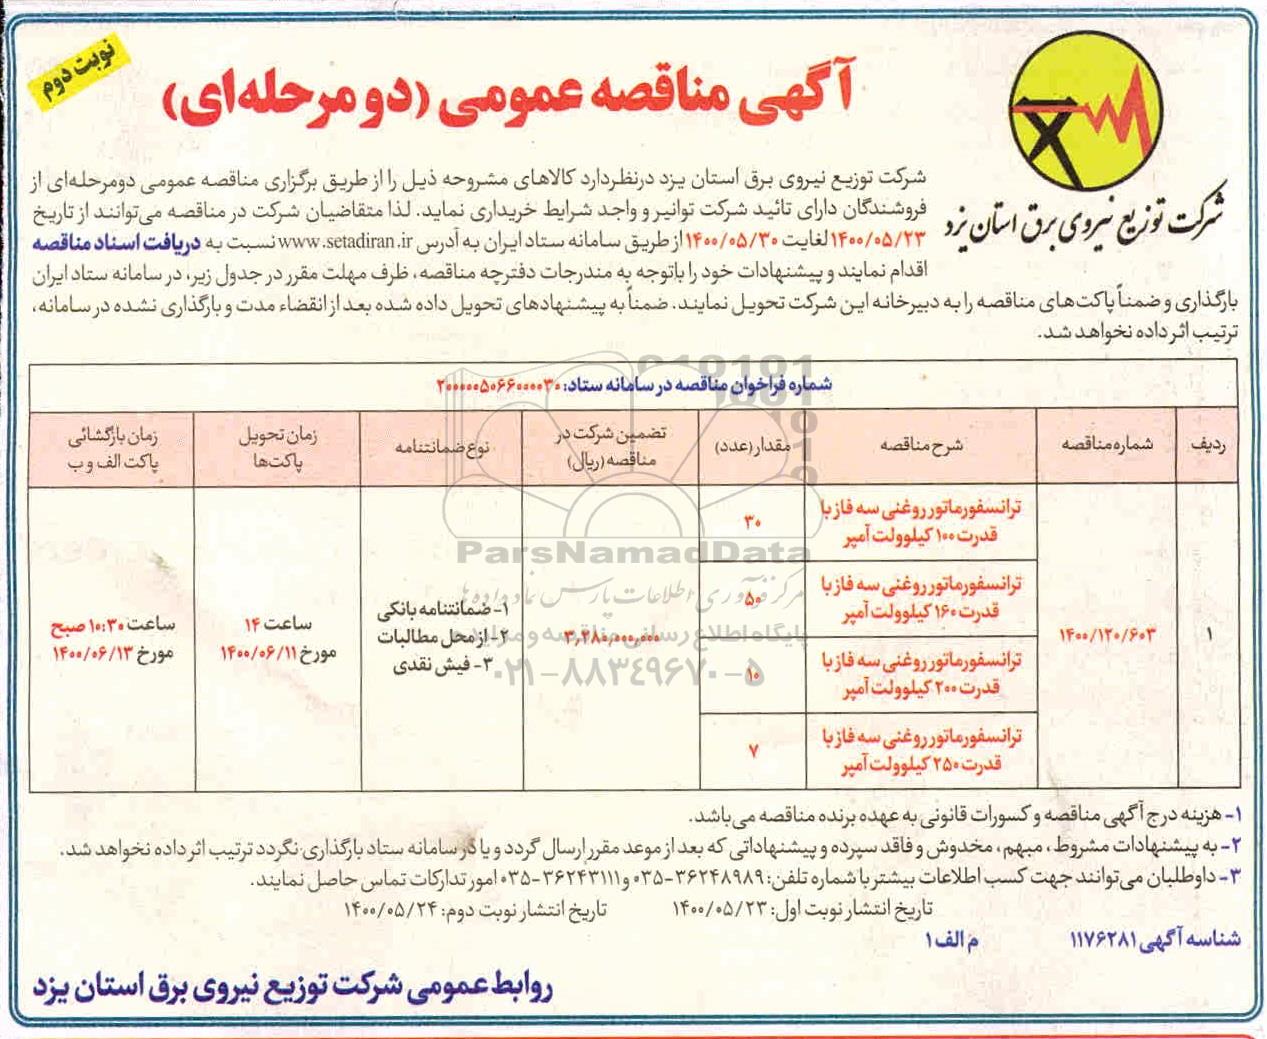 نوبت دوم
آگهی مناقصه عمومی (دو مرحله‌ای)
شرکت توزیع نیروی برق استان یزد
شرکت توزیع نیروی برق استان یزد درنظردارد کالاهای مشروحه ذیل را از طریق برگزاری مناقصه عمومی دومرحله‌ای از
فروشندگان دارای تائید شرکت توانیر و واجد شرایط خریداری نماید. لذا متقاضیان شرکت در مناقصه می‌توانند از تاریخ
۱۴۰۰/۰۵/۲۳ لغایت ۱۴۰۰/۰۵/۳۰ از طریق سامانه ستاد ایران به آدرس www.setadiran.ir نسبت به دریافت اسناد مناقصه
اقدام نمایند و پیشنهادات خود را باتوجه به مندرجات دفترچه مناقصه، ظرف مهلت مقرر در جدول زیر، در سامانه ستاد ایران
بارگذاری و ضمناً پاکت‌های مناقصه را به دبیرخانه این شرکت تحویل نمایند. ضمناً به پیشنهادهای تحویل داده شده بعد از انقضاء مدت و بارگذاری نشده در سامانه،
ترتیب اثر داده نخواهد شد.
شماره فراخوان مناقصه در سامانه ستاد: ۲۰۰۰۰۰۵۰۶۶۰۰۰۰۳۰
ردیف
شماره مناقصه
شرح مناقصه
مقدار (عدد)
تضمین شرکت در
مناقصه (ریال)
نوع ضمانتنامه
زمان تحویل
پاکت‌ها
زمان بازگشائی
پاکت الف و ب
۱
۱۴۰۰/۱۲۰/۶۰۳
ترانسفورماتور روغنی سه فاز با
قدرت ۱۰۰ کیلوولت آمپر
۳۰
ترانسفورماتور روغنی سه فاز با
قدرت ۱۶۰ کیلوولت آمپر
۵۰
ترانسفورماتور روغنی سه فاز با
قدرت ۲۰۰ کیلوولت آمپر
۱۰
ترانسفورماتور روغنی سه فاز با
قدرت ۲۵۰ کیلوولت آمپر
۷
۳,۲۸۰,۰۰۰,۰۰۰
۱- ضمانتنامه بانکی
۲- از محل مطالبات
۳- فیش نقدی
ساعت ۱۴
مورخ ۱۴۰۰/۰۶/۱۱
ساعت ۱۰:۳۰ صبح
مورخ ۱۴۰۰/۰۶/۱۳
ParsNamadData
مرکز فرآوری اطلاعات پارس نماد داده ها
پایگاه اطلاع رسانی مناقصه و مزایده
۰۲۱-۸۸۳۴۹۶۷۰-۵
۱- هزینه درج آگهی مناقصه و کسورات قانونی به عهده برنده مناقصه می‌باشد.
۲- به پیشنهادات مشروط، مبهم، مخدوش و فاقد سپرده و پیشنهاداتی که بعد از موعد مقرر ارسال گردد و یا در سامانه ستاد بارگذاری نگردد ترتیب اثر داده نخواهد شد.
۳- داوطلبان می‌توانند جهت کسب اطلاعات بیشتر با شماره تلفن: ۳۶۲۴۸۹۸۹-۰۳۵ و ۳۶۲۴۳۱۱۱-۰۳۵ امور تدارکات تماس حاصل نمایند.
تاریخ انتشار نوبت اول: ۱۴۰۰/۰۵/۲۳ تاریخ انتشار نوبت دوم: ۱۴۰۰/۰۵/۲۴
شناسه آگهی ۱۱۷۶۲۸۱ م الف ۱
روابط عمومی شرکت توزیع نیروی برق استان یزد